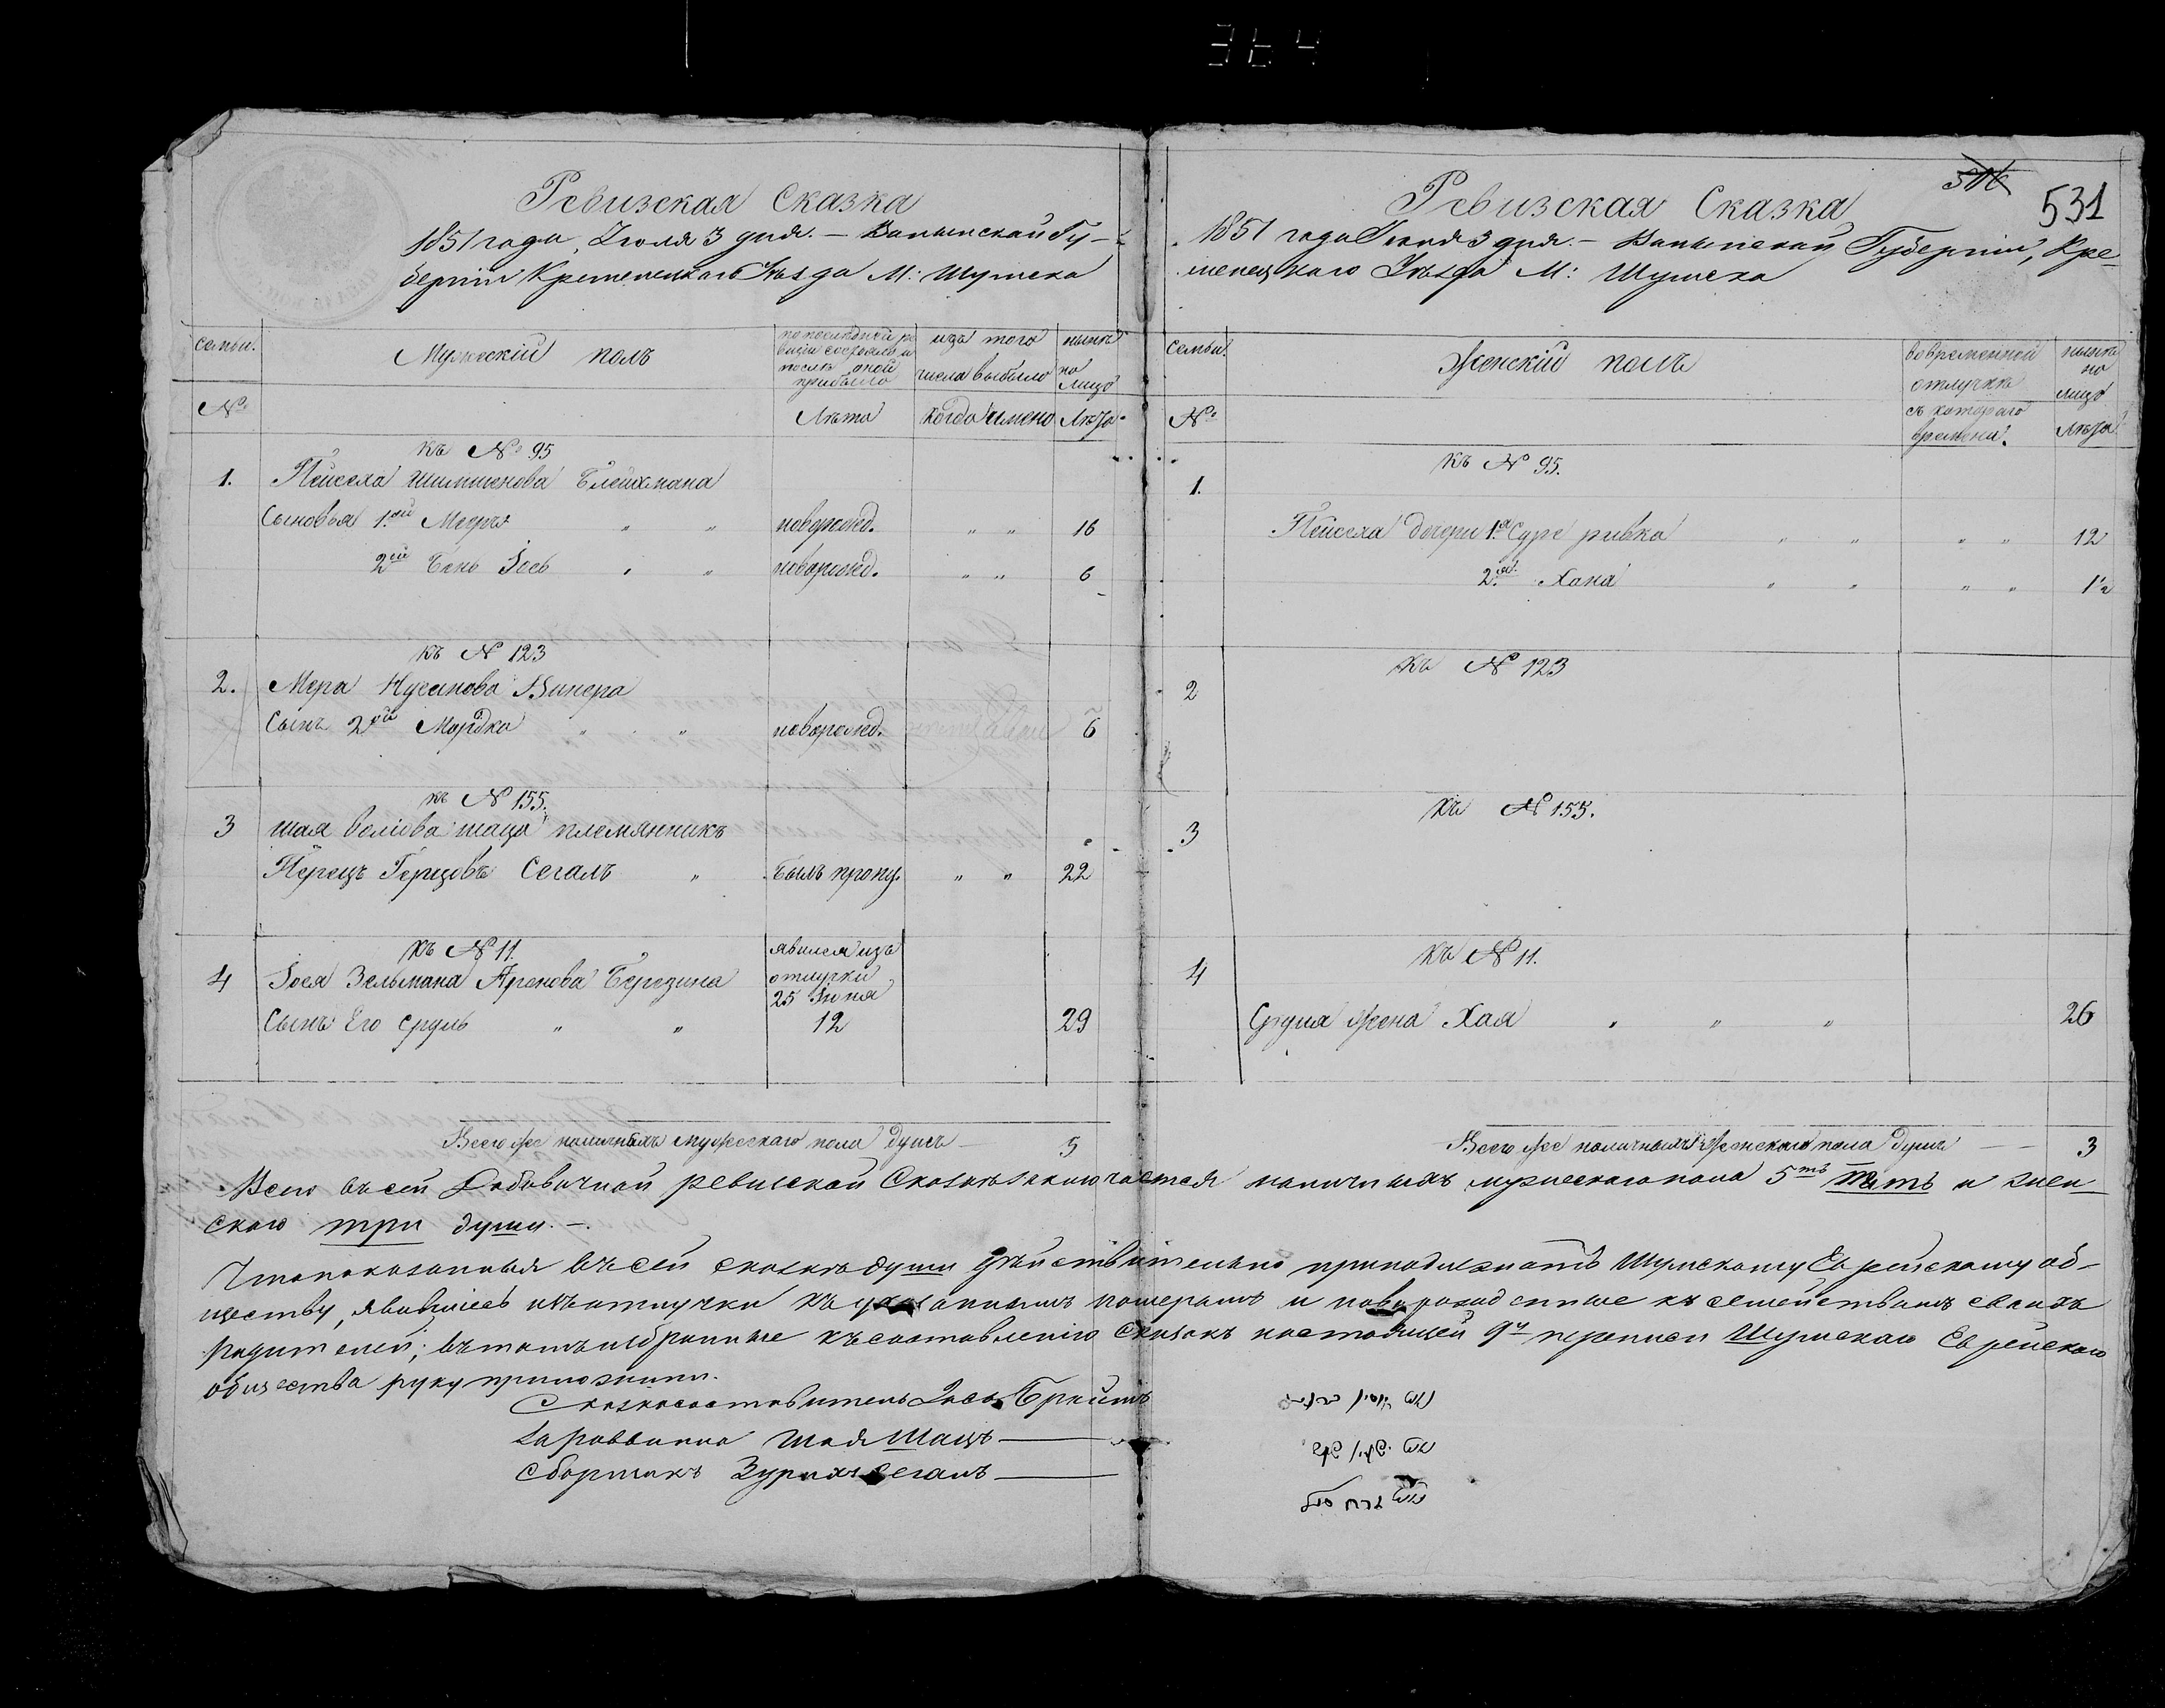 506
531
Ревизская Сказка
1851 года, Июля 3 дня. – Волынской Гу-
берніи Кременецкого Уѣзда М: Шумска
семьи.
Мужескій полъ
по последней ре
визіи состояло и
послѣ оной
прибыло
изъ того
числа выбыло
нынѣ
на
лицо
№
Лѣта
когда имено
Лѣта
къ № 95
1. Пейсаха Шимшонова Блейхмана
Сыновья 1ый Мееръ " " новорожд. " " 16
2ой Бень Іось " " новорожд. " " 6
къ № 123
2. Мера Нусинова Винера
Сынъ 2ой Мордко " " новорожд. 6
къ № 155.
3 Шая Волiова Шаца племянникъ
Перецъ Герцовъ Сегалъ " былъ пропу. " " 22
къ № 11.
явился изъ
отлучки
25 Іюня
4 Іося Зельмана Аронова Березина
Сынъ Его Сруль " " 12 29
Всего же наличныхъ мужескаго пола душъ 5
Ревизская Сказка
1851 года Іюля 3 дня. – Волынской Губерніи, Кре-
менецкого Уѣзда М: Шумска
семьи.
Женскій полъ
во временной
отлучкѣ
съ котораго
времени.
нынѣ
на
лицо
№
Лѣта
къ № 95.
1.
Пейсаха дочери 1я Суре ривка " " " " 12
2я. Хана " " " " 1½
къ № 123
2
къ № 155.
3
къ № 11.
4
Сруля жена Хая " " " 26
Всего же наличныхъ Женскаго пола душъ 3
Всего въ сей Добавочной ревизской Сказкѣ заключается наличныхъ мужескаго пола 5ть пять и жен-
ского три души. –.
Что показанныя въ сей сказкѣ души дѣйствительно принадлежатъ Шумскому Еврейскому об-
ществу, явившiесь изъ отлучки къ указаннымъ номерамъ и новорожденные къ семействамъ своихъ
родителей; въ томъ избранные къ составленію сказокъ настоящей 9й переписи Шумскаго Еврейскаго
общества руку приложили.
Сказкосоставитель Іось Брейтъ
За раввина Шая Шацъ
Сборщикъ Зурахъ Сегалъ